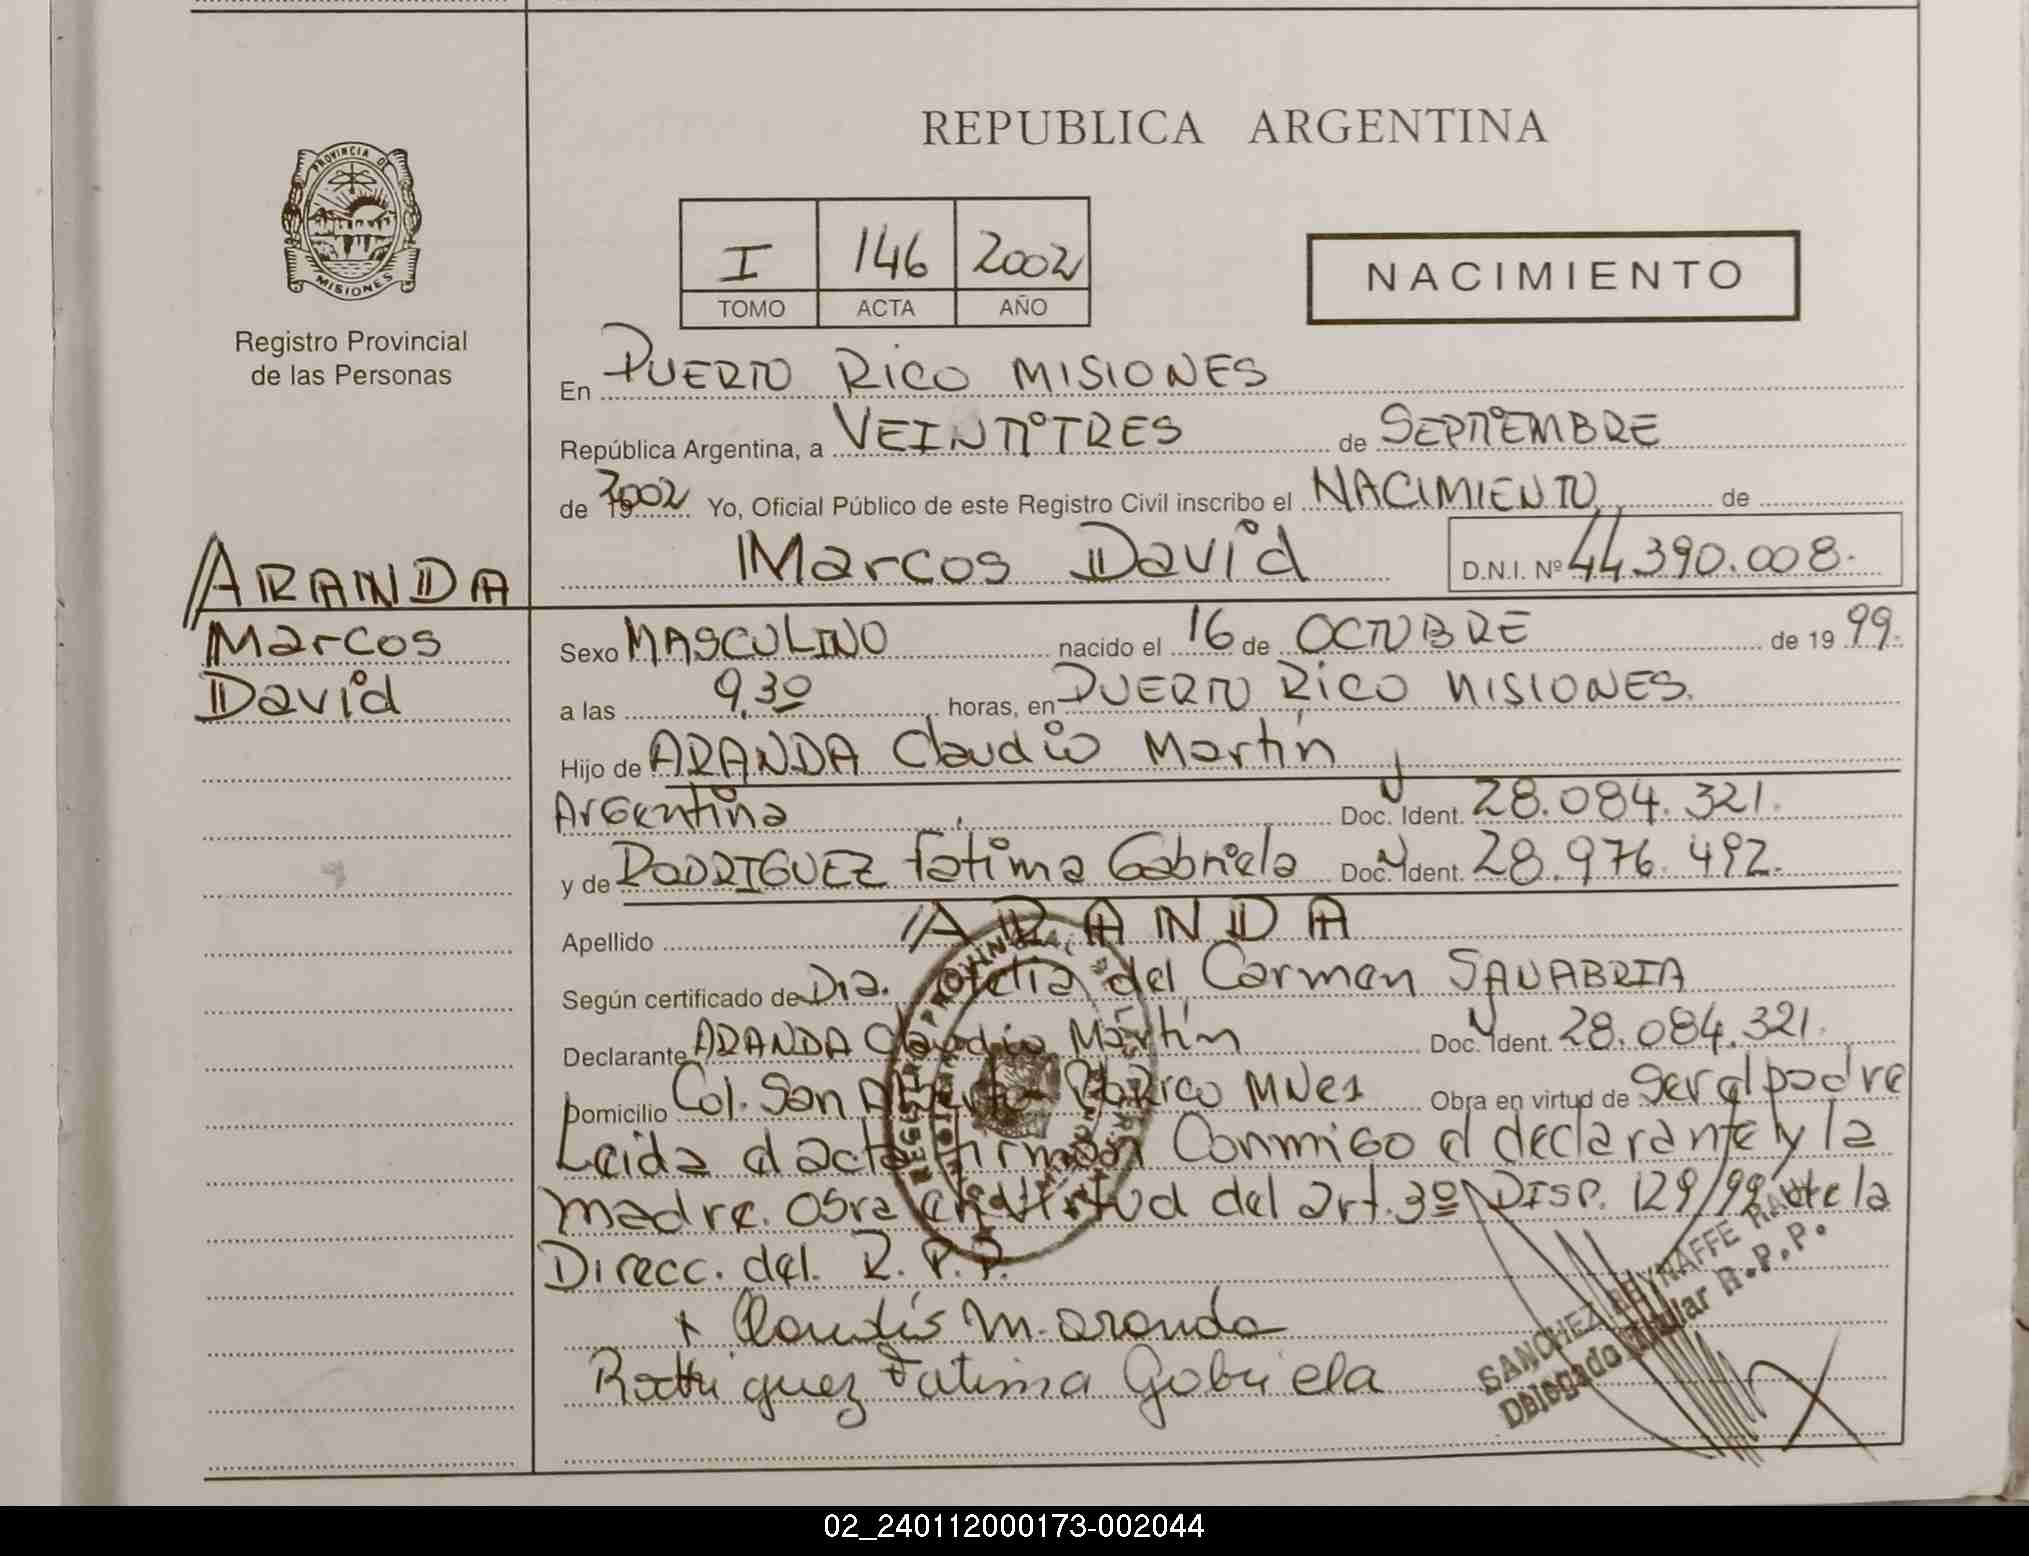 REPUBLICA ARGENTINA
PROVINCIA DE
MISIONES
Registro Provincial
de las Personas
I 146 2002
TOMO ACTA AÑO
NACIMIENTO
En PUERTO RICO MISIONES
República Argentina, a VEINTITRES de SEPTIEMBRE
de 2002 Yo, Oficial Público de este Registro Civil inscribo el NACIMIENTO de
Marcos David D.N.I. Nº 44.390.008.
ARANDA
Marcos
David
Sexo MASCULINO nacido el 16 de OCTUBRE de 19 99.
a las 9,30 horas, en PUERTO RICO MISIONES.
Hijo de ARANDA Claudio Martín
Argentina Doc. Ident. 28.084.321.
y de RODRIGUEZ Fatima Gabriela Doc. Ident. 28.976.492.
Apellido ARANDA
Según certificado de Dra. Ofelia del Carmen SANABRIA
Declarante ARANDA Claudio Martín Doc. Ident. 28.084.321.
Domicilio Col. San Alberto Pto Rico Mnes Obra en virtud de ser el padre
Leida el acta firman Conmigo el declarante y la
madre. Obra en virtud del art. 3º DISP. 129/99 de la
Direcc. del. R. P. P.
x Claudio M. aranda
Rodriguez Fatima Gabriela
SANCHEZ
Delegado Titular R.P.P.
02_240112000173-002044